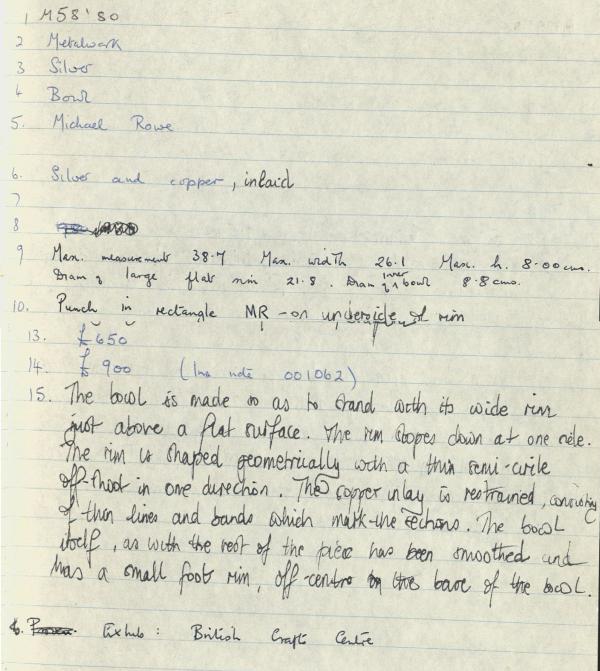 1 M58'80
2 Metalwork
3 Silver
4 Bowl
5. Michael Rowe
6. Silver and copper, inlaid
7
8
9 Max. measurement 38.7 Max. width 26.1 Max. h. 8.00 cms.
Diam of large flat rim 21.8. Diam of inner bowl 8.8 cms.
10. Punch in rectangle MR - on underside of rim
13. £650
14. £900 (Ins note 001062)
15. The bowl is made so as to stand with its wide rim
just above a flat surface. The rim slopes down at one side.
The rim is shaped geometrically with a thin semi-circle
off-shoot in one direction. The copper inlay is restrained, consisting
of thin lines and bands which mark the sections. The bowl
itself, as with the rest of the piece has been smoothed and
has a small foot rim, off-centre to the base of the bowl.
Exhib: British Crafts Centre